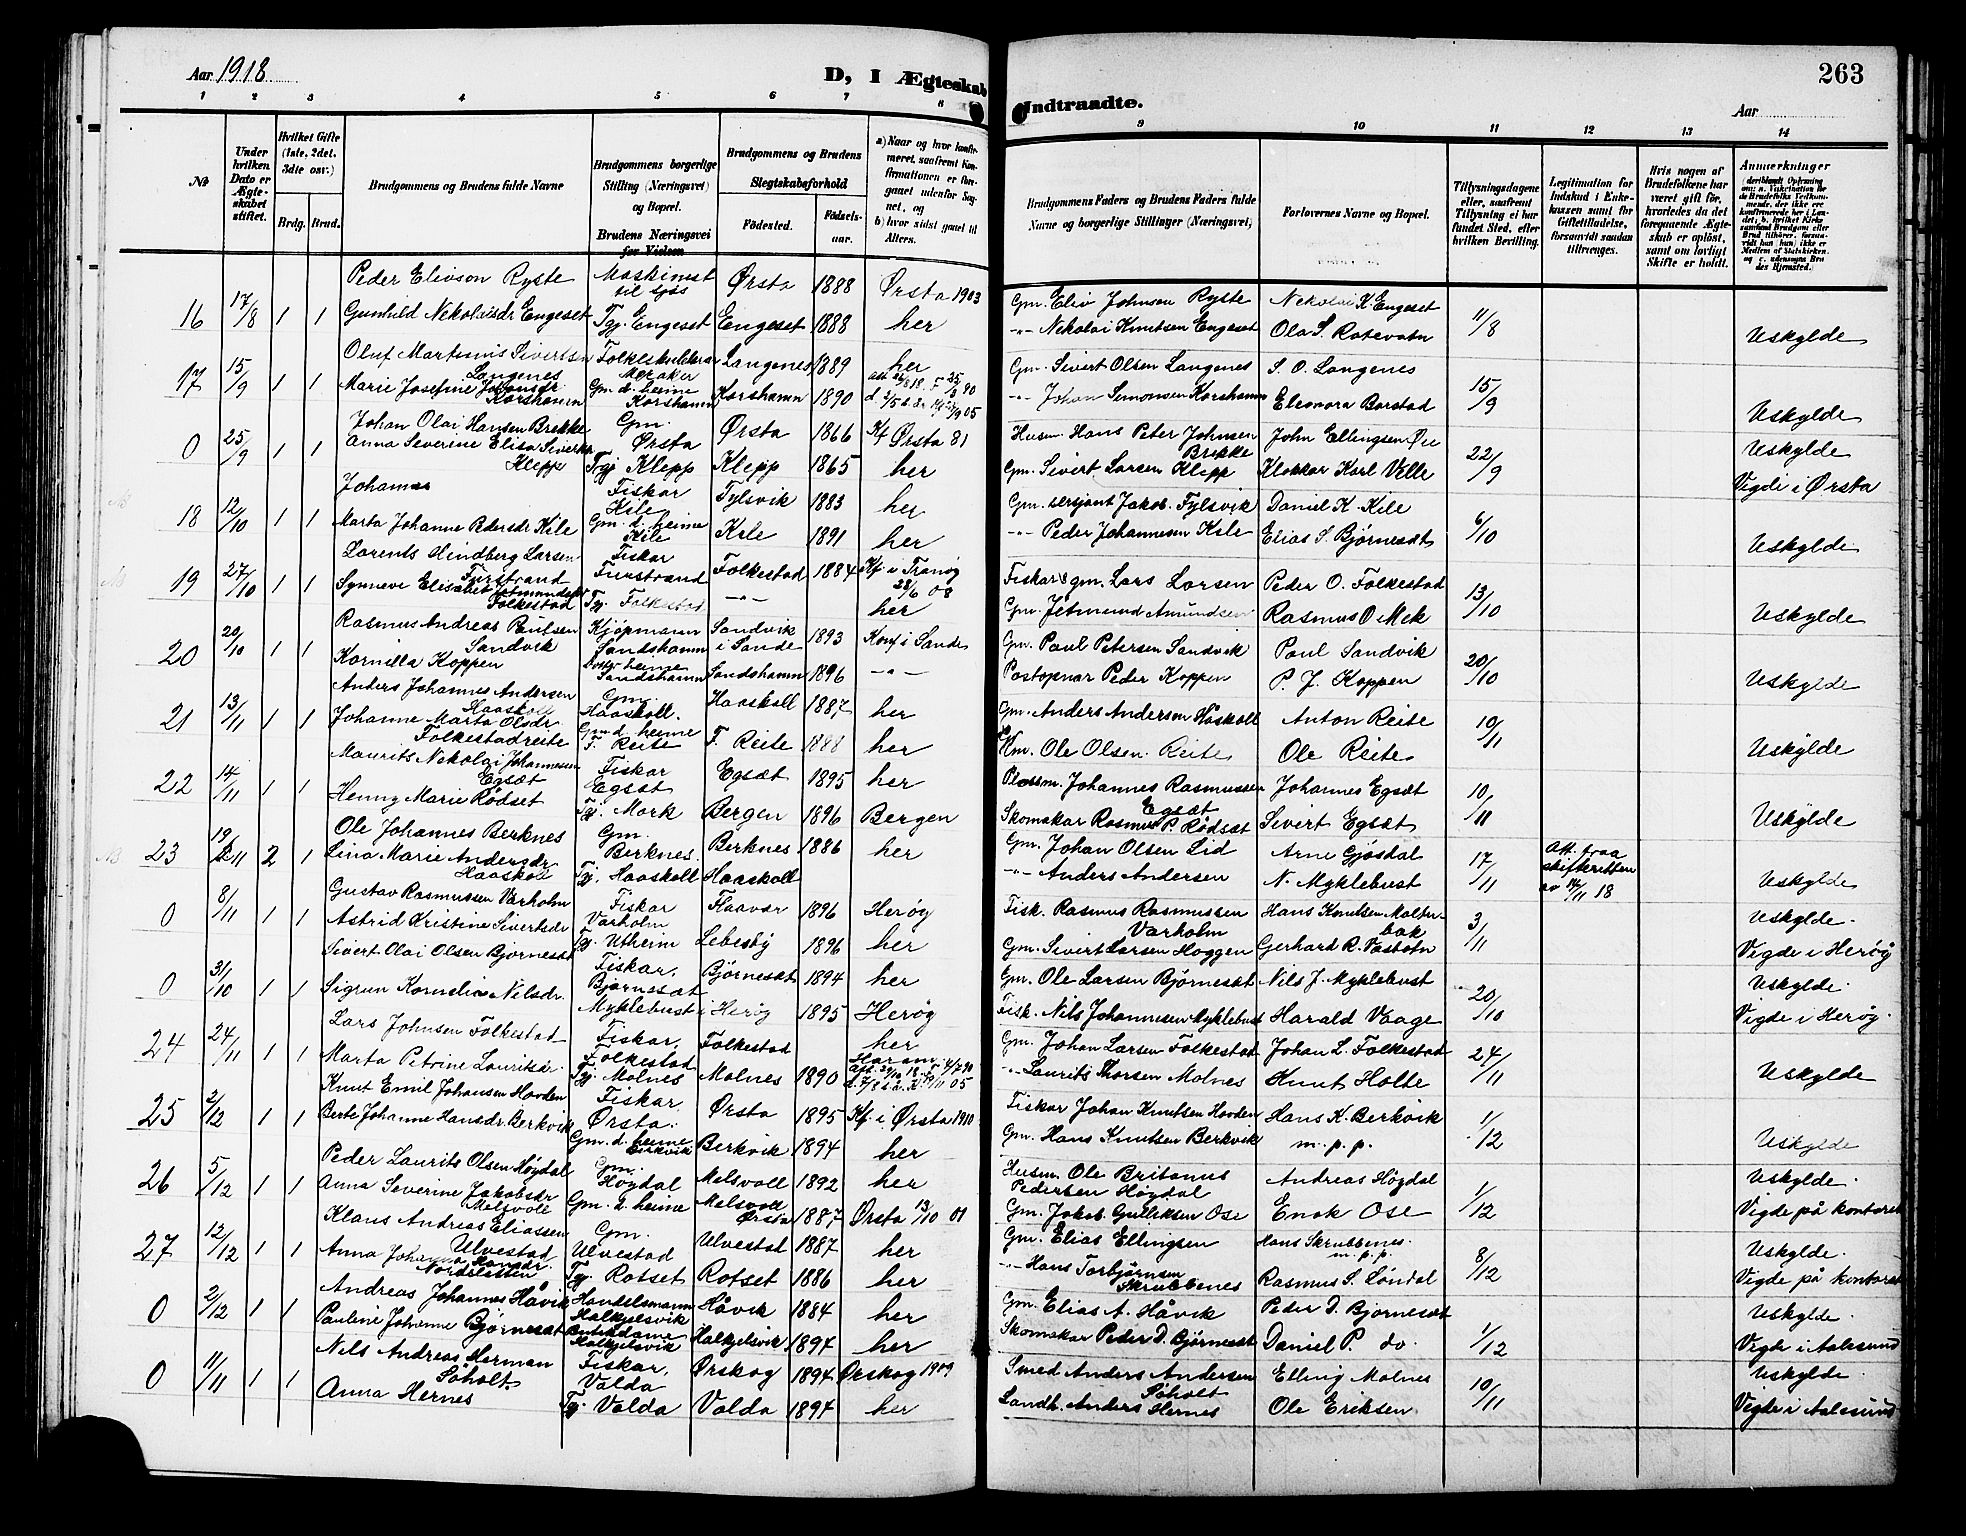 Aar 1918
D, I Ægteskab
Indtraadte.
263
Aar
1 2 3 4 5 6 7 8 9 10 11 12 13 14
No
Under hvilken Dato er Ægteskabet stiftet.
Hvilket Gifte (1ste, 2det, 3die osv.)
Brdg. Brud.
Brudgommens og Brudens fulde Navne
Brudgommens borgerlige Stilling (Næringsvei) og Bopæl.
Brudens Næringsvei før Vielsen
Brudgommens og Brudens
Slegtskabsforhold
Fødested.
Fødselsaar.
a) Naar og hvor konfirmeret, saafremt Konfirmationen er foregaaet udenfor Sognet, og
b) hvor sidst gaaet til Alters.
Brudgommens Faders og Brudens Faders fulde Navne og borgerlige Stillinger (Næringsvei)
Forlovernes Navne og Bopæl.
Tillysningsdagene eller, saafremt Tillysning ei har fundet Sted, efter hvilken Bevilling.
Legitimation for Indskud i Enkekassen samt for Giftetilladelse, forsaavidt saadan tiltrænges.
Hvis nogen af Brudefolkene har været gift før, hvorledes da det foregaaende Ægteskab er opløst, samt om lovligt Skifte er holdt.
Anmerkninger
16 17/8 1 1 Peder Eliøson Ryste Maskinist til sjøs Ørsta 1888 Ørsta 1903 Gm. Eliø Johnsen Ryste Nekolai K. Engeset 11/8
Gunhild Nekolaisdr Engeset Tgj. Engeset Engeset 1888 her -"- Nekolai Knutsen Engeset Ola S. Rotevatn Uskylde
17 15/9 1 1 Oluf Martinus Sivertsen Langenes Folkeskulelærar Meraker Langenes 1889 her Gm. Sivert Olsen Langenes S. O. Langenes 15/9
Marie Josefine Johansdr. Korshamn Gm. d. heime Korshamn Korshamn 1890 -"- Johan Simonsen Korshamn Eleonora Barstad Uskylde
0 25/9 1 1 Johan Olai Hansen Brekke Gm. Ørsta Ørsta 1866 Kf Ørsta 81 Husm. Hans Peter Johnsen Brekke John Ellingsen Øie 22/9 Uskylde
Anna Severine Elisa Sivertsdr Klepp Tgj Klepp Klepp 1865 her Gm. Sivert Larsen Klepp Klokkar Karl Velle Vigde i Ørsta
18 12/10 1 1 Johannes Fiskar Kile Fylsvik 1883 her Gm. sersjant Jakob Fylsvik Daniel K. Kile 6/10
Marta Johanne Pedersdr Kile Gm. d. heime Kile Kile 1891 her -"- Peder Johannesen Kile Elias S. Bjørnesæt Uskylde
19 27/10 1 1 Lorents Hindberg Larsen Furstrand Fiskar Furstrand Folkestad 1884 Kf. i Tranøy Fiskar & gm. Lars Larsen Peder O. Folkestad 13/10
Synneve Elisabet Jetmundsdr Folkestad Tgj. Folkestad -"- her Gm. Jetmund Amundsen Rasmus O Mek Uskylde
20 20/10 1 1 Rasmus Andreas Paulsen Sandvik Kjøpmann Sandshamn Sandvik i Sande 1893 Konf i Sande Gm. Paul Petersen Sandvik Paul Sandvik 20/10
Kornilla Koppen heime Sandshamn Sandshamn 1896 -"- Postopnar Peder Koppen P. J. Koppen Uskylde
21 13/11 1 1 Anders Johannes Andersen Haaskoll Gm. Haaskoll. Haaskoll 1887 her Gm. Anders Andersen Håskoll Anton Reite 10/11
Johanne Marta Olsdr. Folkestadreite Gm d. heime F. Reite F. Reite 1888 her Km. Ole Olsen Reite Ole Reite Uskylde
22 14/11 1 1 Maurits Nekolai Johannesen Egsæt Fiskar Egsæt Egsæt 1895 her Plassm. Johannes Rasmussen Egsæt Johannes Egsæt 10/11
Henny Marie Rødset Tgj. Mork Bergen 1896 Bergen Skomakar Rasmus P. Rødsæt Sivert Egsæt Uskylde
23 19/11 2 1 Ole Johannes Berknes Gm. Berknes. Berknes 1886 her Gm. Johan Olsen Lid Arne Gjøsdal 17/11 Att. fraa skifteretten av 14/11 18
Lina Marie Andersdr Haaskoll Tgj. Haaskoll Haaskoll -"- Anders Andersen N. Myklebust Uskylde
0 8/11 1 1 Gustav Rasmussen Varholm Fiskar Varholm Flaavær 1896 Herøy Fisk. Rasmus Rasmussen Varholm Hans Knutsen Molterbak 3/11 Uskylde.
Astrid Kristine Sivertsdr Tgj. Utheim Lebesby 1896 her Gm. Sivert Larsen Hoggen Gerhard R. Vasbotn Vigde i Herøy
0 31/10 1 1 Sivert Olai Olsen Bjørnesæt Fiskar. Bjørnesæt Bjørnesæt 1894 her Gm. Ole Larsen Bjørnesæt Nils J. Myklebust 20/10 Uskylde.
Sigrun Kornelia Nilsdr. Myklebust i Herøy 1895 Herøy Fisk. Nils Johannesen Myklebust Harald Vaage Vigde i Herøy.
24 24/11 1 1 Lars Johnsen Folkestad Fiskar. Folkestad Folkestad her Gm. Johan Larsen Folkestad Johan L. Folkestad 24/11
Marta Petrine Lauritsdr. Tgj. Molnes Molnes 1890 Haram -"- Laurits Thorsen Molnes Knut Holte Uskylde
25 2/12 1 1 Knut Emil Johansen Hovden Fiskar. Ørsta. Ørsta 1895 Kf. i Ørsta 1910 Fiskar Johan Knutsen Hovden Hans K. Berkvik 1/12
Berte Johanne Hansdr. Berkvik Gm. d. heime Berkvik Berkvik 1894 her Gm. Hans Knutsen Berkvik m. p. p. Uskylde
26 5/12 1 1 Peder Laurits Olsen Høydal Gm. Høydal Melsvoll 1892 her Husm. Ole Britanus Pedersen Høydal Andreas Høydal 1/12 Uskylde.
Anna Severine Jakobsdr Melsvoll Gm. d. heime Melsvoll Ørsta 1887 Ørsta 13/10 01 Gm. Jakob Gulleksen Ose Enok Ose Vigde på kontoret
27 12/12 1 1 Klaus Andreas Eliassen Ulvestad Gm. Ulvestad Ulvestad 1887 her Gm. Elias Ellingsen Hans Skrubbenes m. p. p. 8/12 Uskylde.
Anna Johanna Hansdr. Tgj. Rotset Rotset 1886 her -"- Hans Torbjørnsen Skrubbenes Rasmus S. Løndal Vigde på kontoret
0 2/12 1 1 Andreas Johannes Håvik Handelsmann Halkjelsvik Håvik 1884 her Gm. Elias A. Håvik Peder D. Bjørnesæt 1/12 Uskylde.
Pauline Johanne Bjørnesæt Butikdame Halkjelsvik Halkjelsvik 1897 her Skomakar Peder D. Bjørnesæt Daniel P. do. Vigde i Aalesund
0 11/11 1 1 Nils Andreas Herman Søholt. Fiskar. Valda Ørskog 1894 Ørskog 1909 Smed Anders Andersen Søholt Elling Molnes 10/11 Uskylde.
Anna Hernes Tgj. Volda Volda 1897 her Landh. Anders Hernes Ole Eriksen Vigde i Aalesund